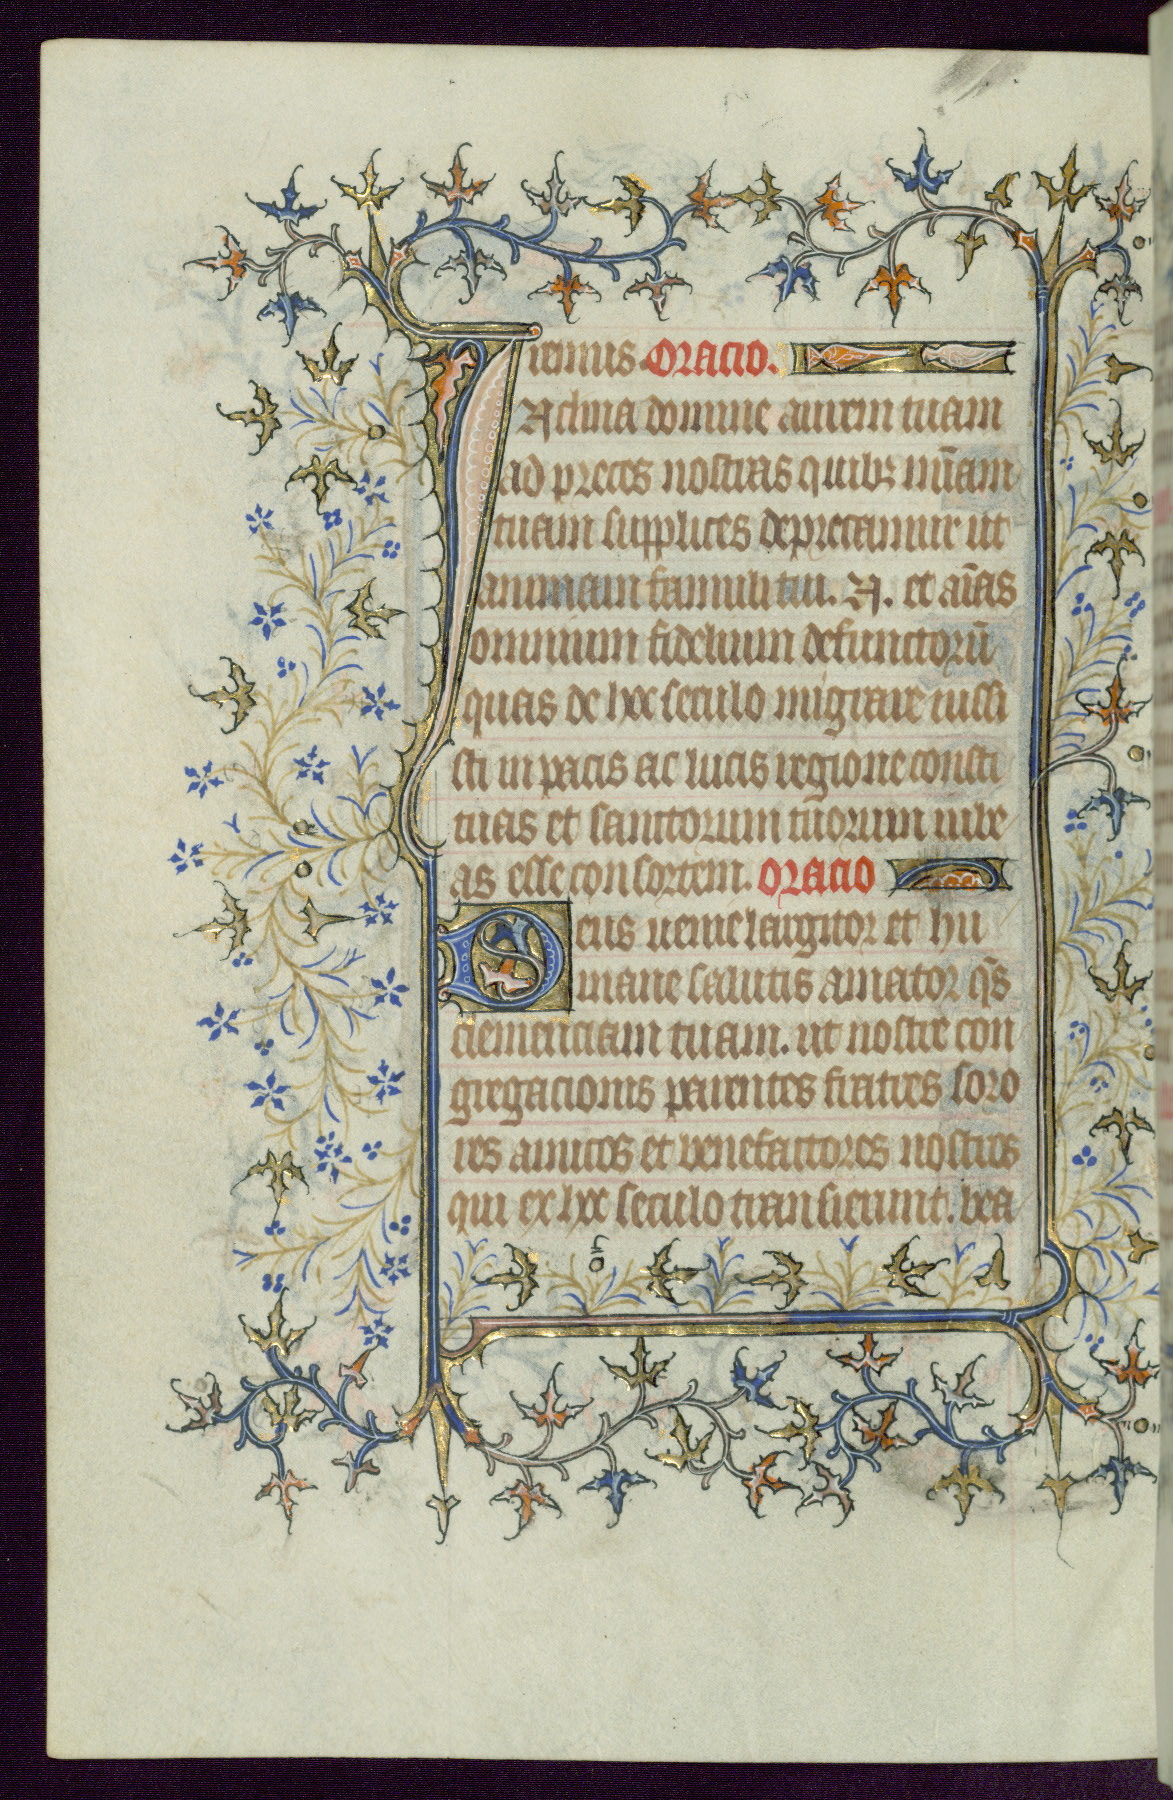 iemus Oracio.
Nclina domine aurem tuam
ad preces nostras quibꝫ mīam
tuam supplices deprecamur ut
animam famuli tui. N. et aīas
omnium fidelium defunctorū
quas de hoc seculo migrare iussi
sti in pacis ac lucis regione consti
tuas et sanctorum tuorum iube
as esse consortem. Oracio
Deus uenie largitor et hu
mane salutis amator q̄s
clementiam tuam. ut nostre con
gregacionis parentes fratres soro
res amicos et benefactores nostros
qui ex hoc seculo transierunt. bea